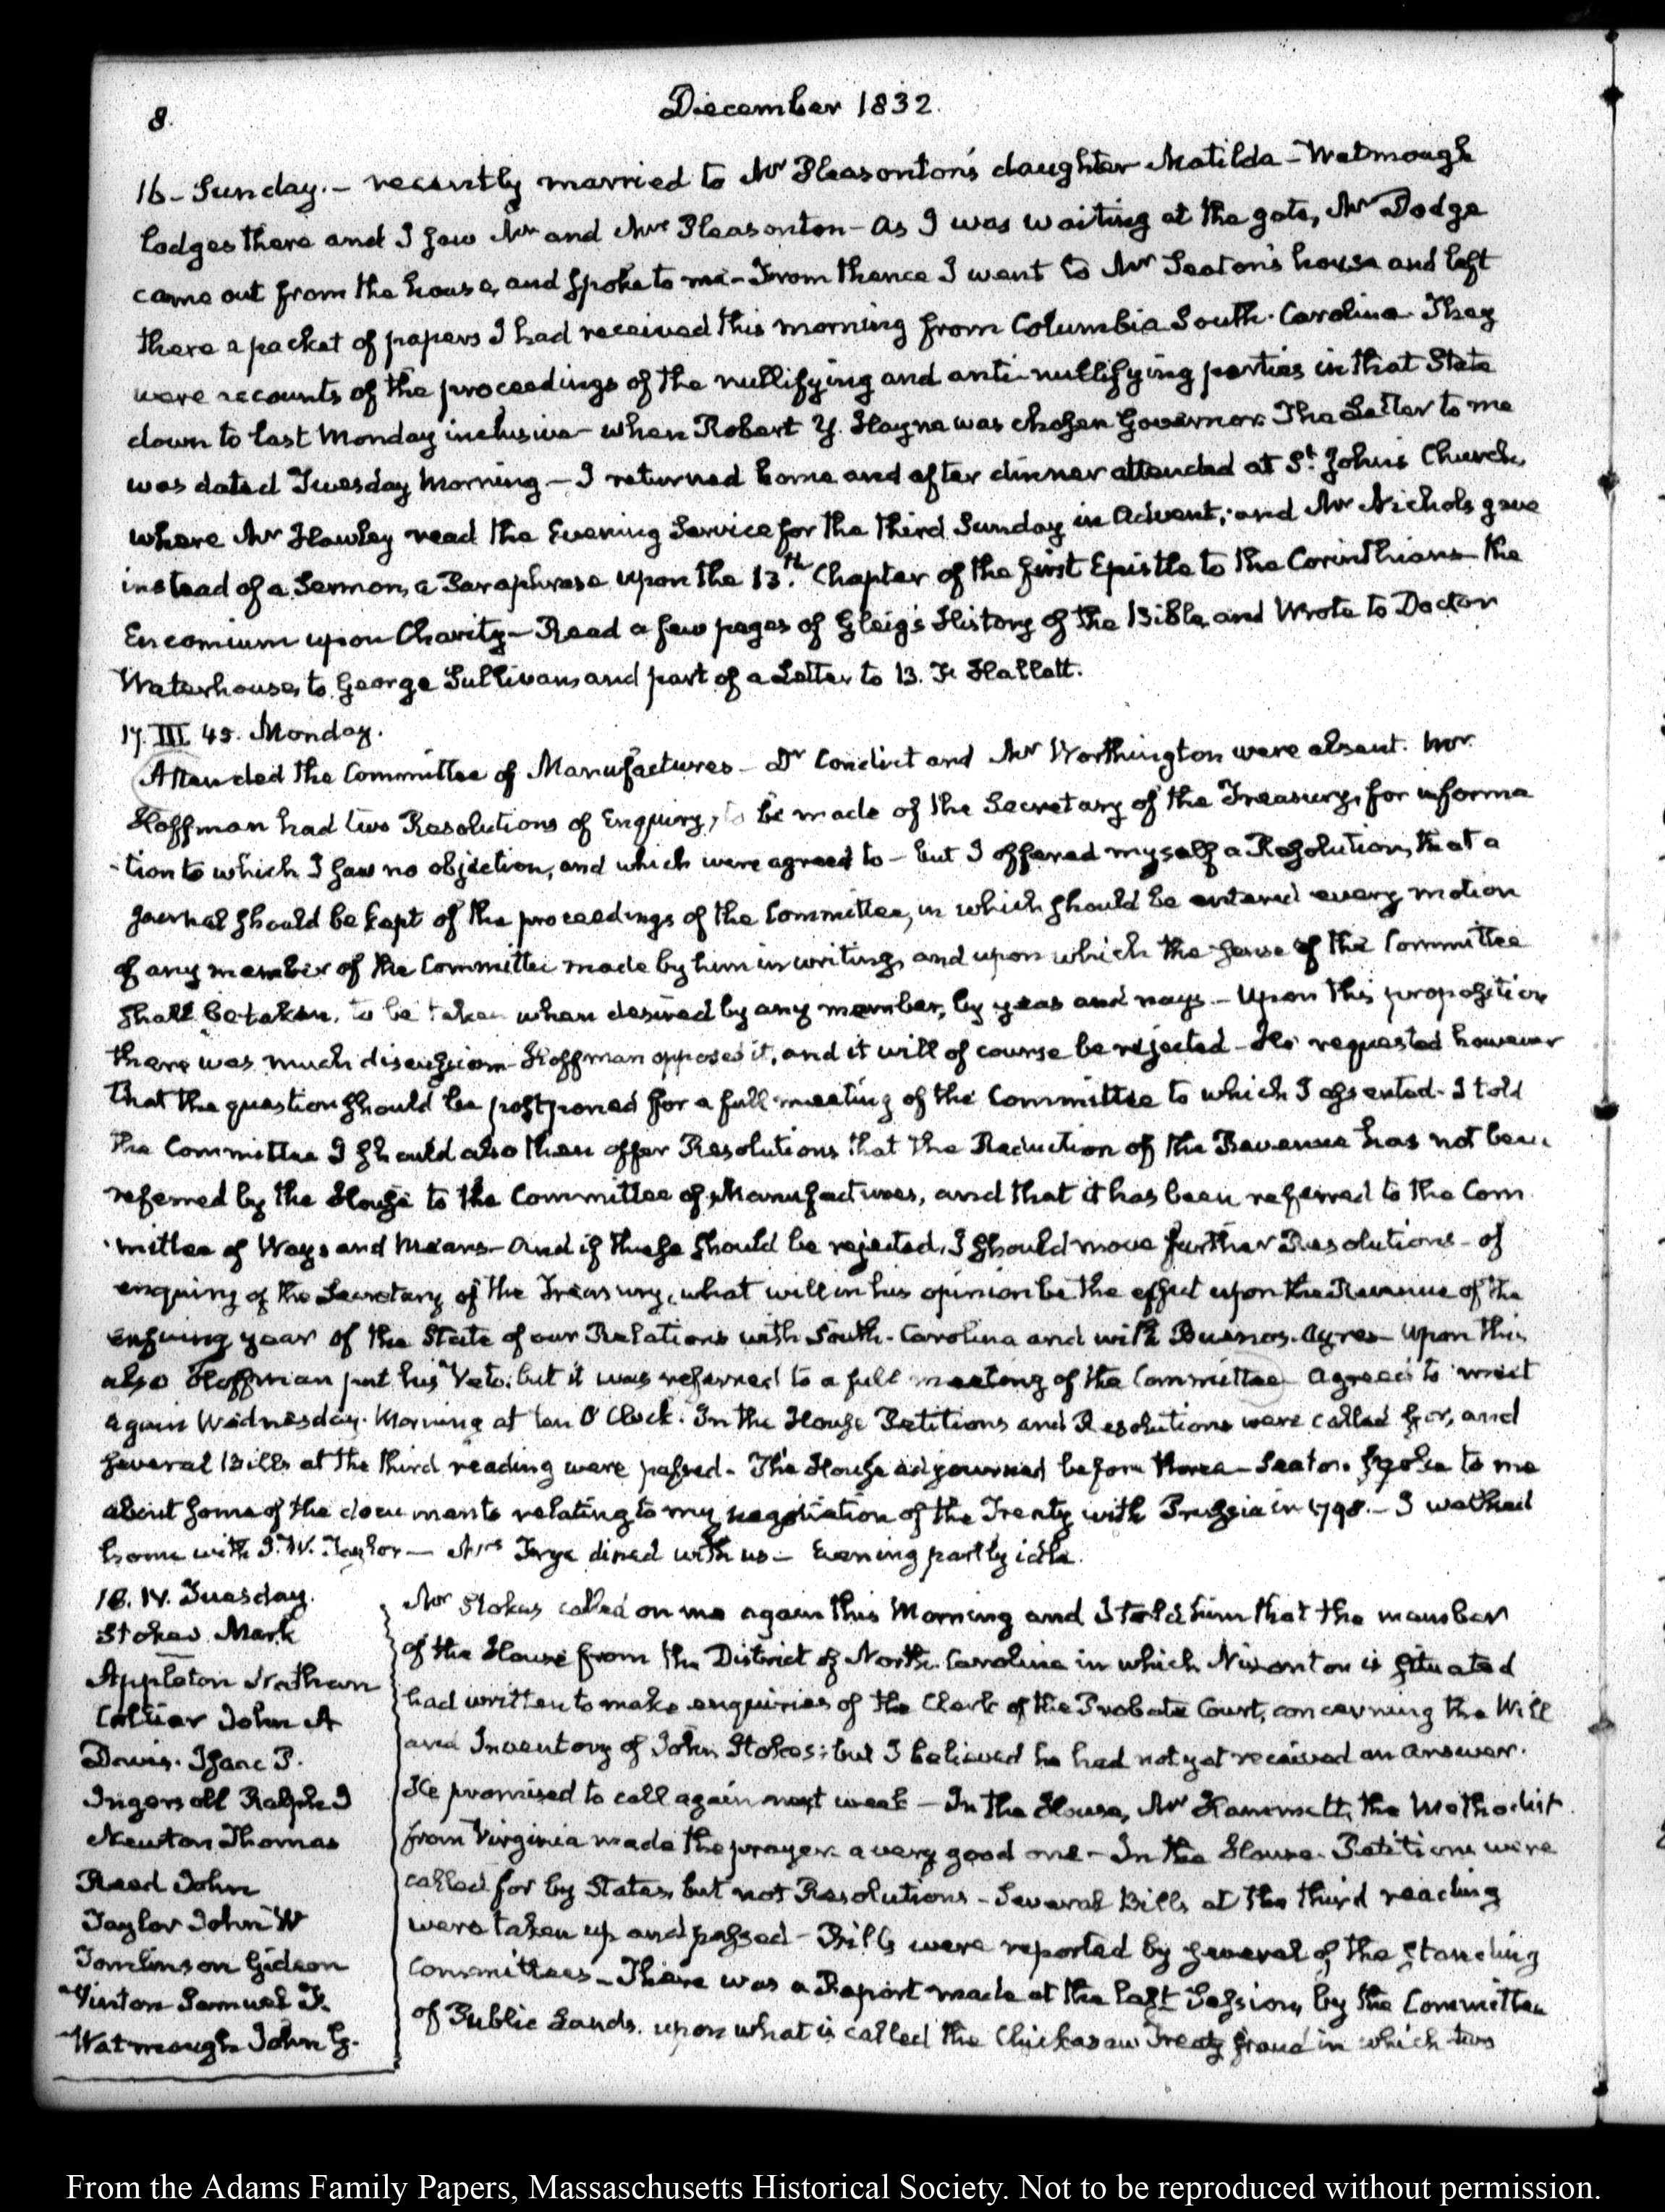 8.
December 1832.
16 - Sunday. - recently married to Mr Pleasonton's daughter Matilda - Watmough
lodges there and I saw Mr and Mrs Pleasonton - As I was waiting at the gate, Mr Dodge
came out from the house, and spoke to me - From thence I went to Mr Seaton's house and left
there a packet of papers I had received this morning from Columbia South-Carolina. They
were accounts of the proceedings of the nullifying and anti-nullifying parties in that State
down to last Monday inclusive - when Robert Y. Hayne was chosen Governor. The Letter to me
was dated Tuesday Morning - I returned home and after dinner attended at St. John's Church,
where Mr Hawley read the Evening Service for the third Sunday in Advent; and Mr Nichols gave
instead of a Sermon, a Paraphrase upon the 13.th Chapter of the first Epistle to the Corinthians - the
Encomium upon Charity - Read a few pages of Gleig's History of the Bible, and Wrote to Doctor
Waterhouse, to George Sullivan, and part of a Letter to B. F. Hallett.
17. III. 45. Monday.
Attended the Committee of Manufactures - Dr Condict and Mr Worthington were absent. Mr.
Hoffman had two Resolutions of Enquiry, to be made of the Secretary of the Treasury, for informa
-tion to which I saw no objection, and which were agreed to - but I offered myself a Resolution, that a
Journal should be kept of the proceedings of the Committee, in which should be entered every motion
of any member of the Committee made by him in writing, and upon which the sense of the Committee
shall be taken, to be taken when desired by any member, by yeas and nays - Upon this proposition
there was much discussion - Hoffman opposed it, and it will of course be rejected - He requested however
that the question should be postponed for a full meeting of the Committee to which I assented - I told
the Committee I should also then offer Resolutions that the Reduction of the Revenue has not been
referred by the House to the Committee of Manufactures, and that it has been referred to the Com
-mittee of Ways and Means - And if these should be rejected, I should move further Resolutions - of
enquiry of the Secretary of the Treasury, what will in his opinion be the effect upon the Revenue of the
ensuing year of the State of our Relations with South-Carolina and with Buenos-Ayres - Upon this
also Hoffman put his Veto: but it was referred to a full meeting of the Committee - Agreed to meet
again Wednesday Morning at ten O'Clock. In the House Petitions and Resolutions were called for, and
several Bills at the third reading were passed - The House adjourned before three - Seaton spoke to me
about some of the documents relating to my negotiation of the Treaty with Prussia in 1798. - I walked
home with J. W. Taylor - Mrs Frye dined with us - Evening partly idle.
18. IV. Tuesday.
Stokes Mark
Appleton Nathan
Collier John A
Davis. Isaac P.
Ingersoll Ralph I
Newton Thomas
Reed John
Taylor John W
Tomlinson Gideon
Vinton Samuel F.
Watmough John G.
Mr Stokes called on me again this Morning and I told him that the member
of the House from the District of North-Carolina in which Nixonton is situated
had written to make enquiries of the Clerk of the Probate Court, concerning the Will
and Inventory of John Stokes; but I believed he had not yet received an answer.
He promised to call again next week - In the House, Mr Hammett, the Methodist
from Virginia made the prayer - a very good one - In the House. Petitions were
called for by States, but not Resolutions - Several Bills at the third reading
were taken up and passed - Bills were reported by several of the standing
Committees - There was a Report made at the last Session, by the Committee
of Public Lands. upon what is called the Chickasaw Treaty fraud in which two
From the Adams Family Papers, Massachusetts Historical Society. Not to be reproduced without permission.